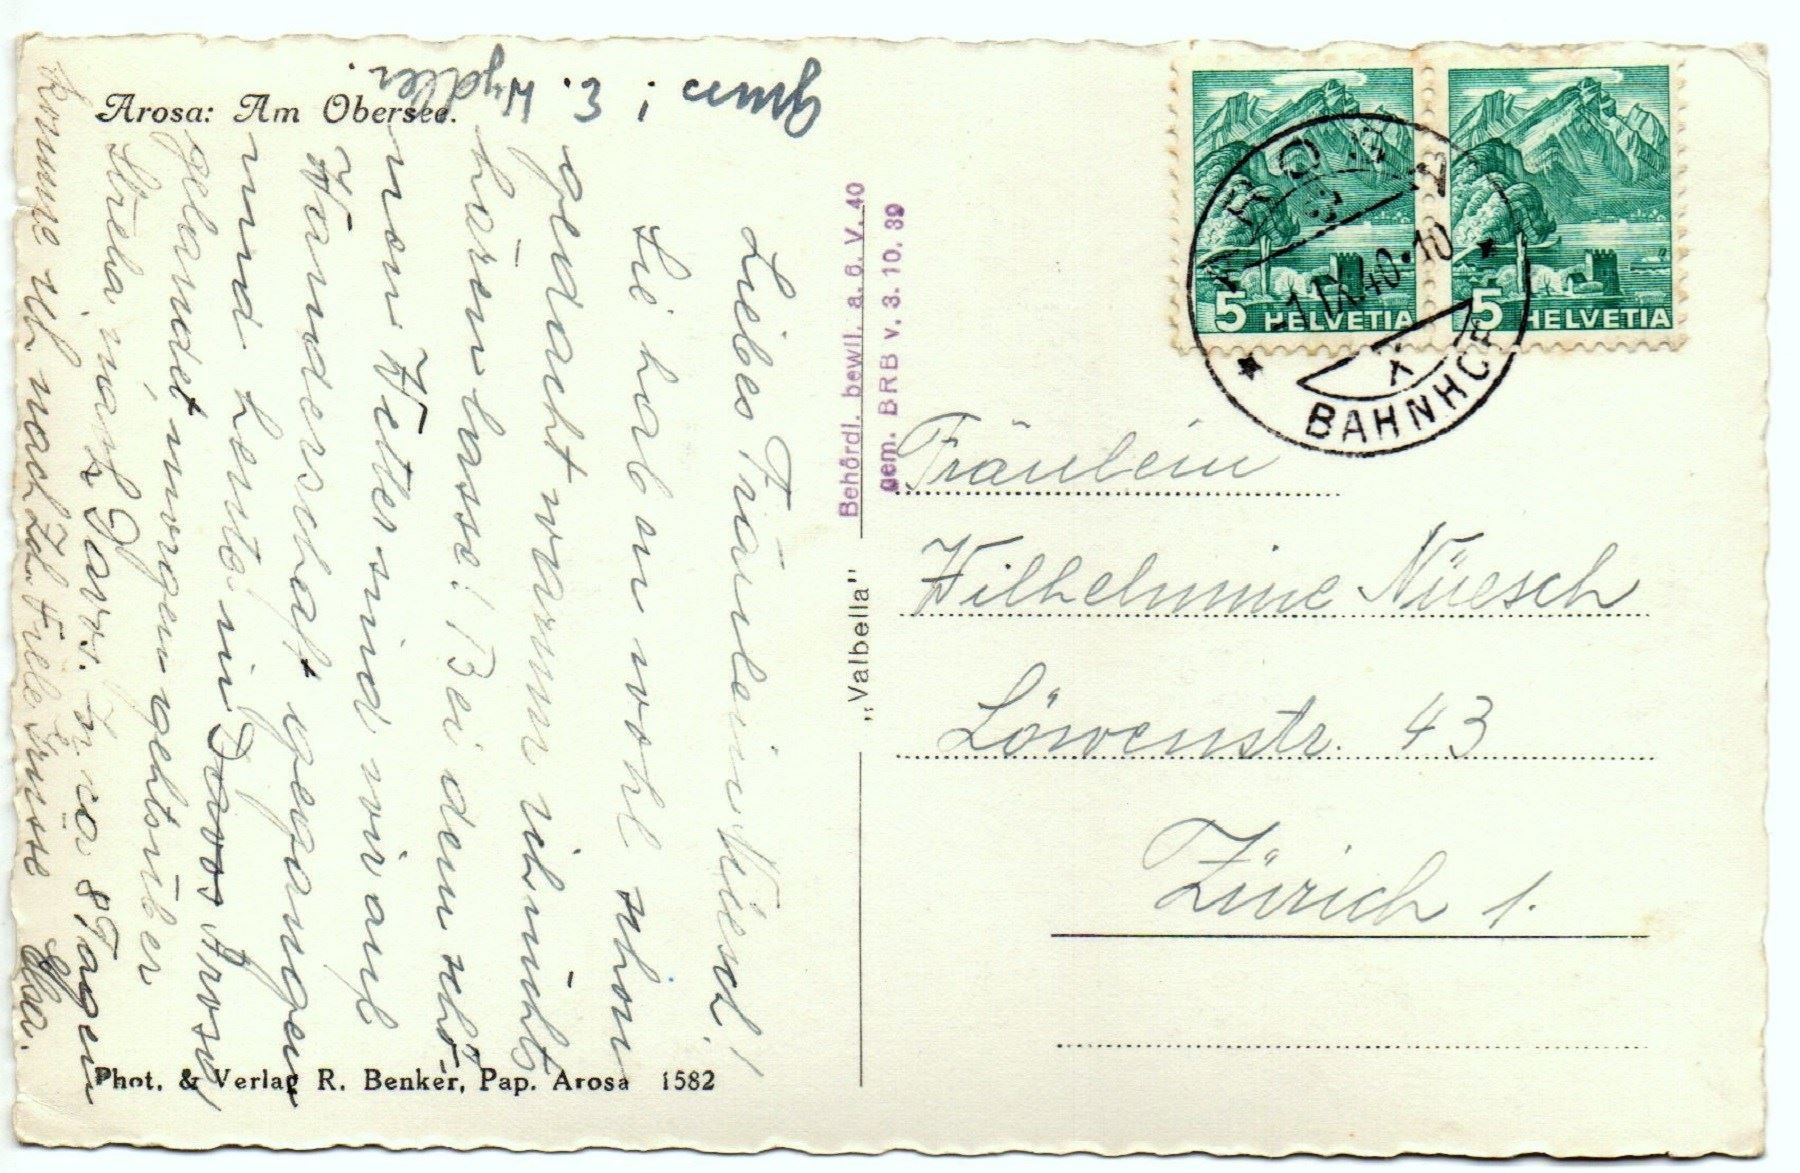 Arosa: Am Obersee.
Liebes Fräulein Nüesch!
Sie haben wohl schon
gedacht warum ich nichts
hören lasse! Bei dem schö-
nen Wetter sind wir auf
Wanderschaft gegangen
und heute in Davos Arosa
gelandet, morgen gehts über
Strela nach Davos. In ca 8 Tagen
komme ich nach Zch. Viele Grüsse
E. Wydler.
Phot. & Verlag R. Benker, Pap. Arosa 1582
"Valbella"
Behördl. bewill. a. 6. V. 40
gem. BRB v. 3. 10. 39
5 HELVETIA
5 HELVETIA
AROSA
-1.IX.40.10
BAHNHOF
Fräulein
Wilhelmine Nüesch
Löwenstr. 43
Zürich 1.